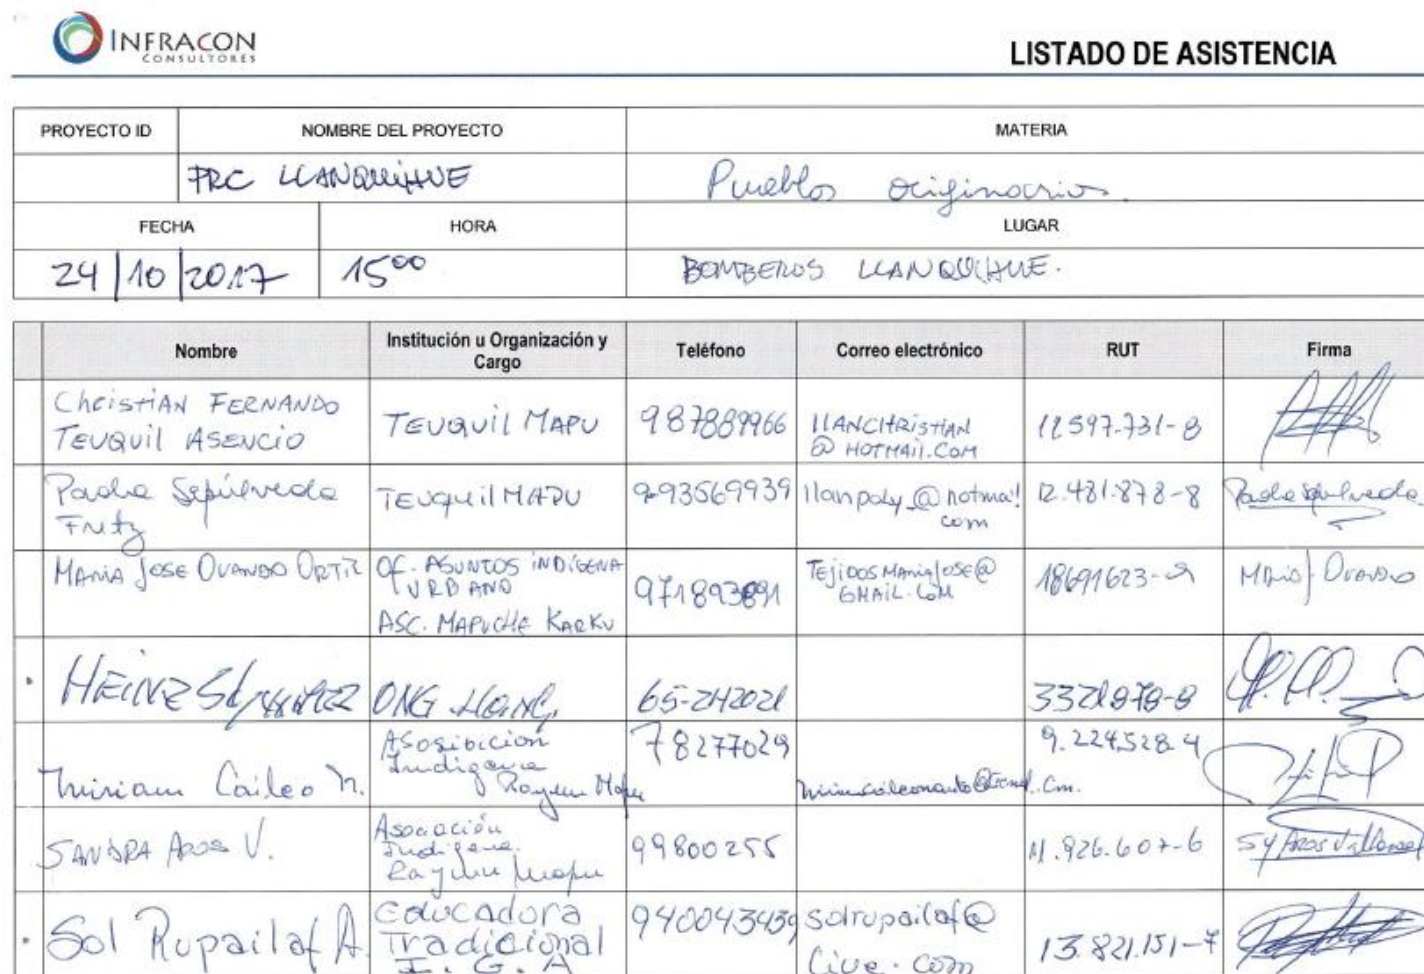 INFRACON
CONSULTORES
LISTADO DE ASISTENCIA
PROYECTO ID NOMBRE DEL PROYECTO MATERIA
PRC LLANQUIHUE Pueblos originarios.
FECHA HORA LUGAR
24/10/2017 15:00 BOMBEROS LLANQUIHUE.
Nombre Institución u Organización y Cargo Teléfono Correo electrónico RUT Firma
Christian FERNANDO
TEUQUIL ASENCIO
TEUQUIL MAPU
987889966
llanchristian
@ HOTMAIL.COM
12.597.731-8
Paola Sepúlveda
Fritz
TEUQUIL MAPU
9-93569939
llanpoly_@hotmail
com
12.481.878-8
Paola Sepúlveda
MARIA JOSE OVANDO ORTIZ
OF. ASUNTOS INDÍGENA
URBANO
ASC. MAPUCHE KARKU
971893891
TEJIDOSMARIAJOSE@
GMAIL.COM
18691623-
OVANDO
HEINZ
ONG
65-242021
Miriam Caileo N.
Asosiacion
Indigena
Rayen Mapu
78277029
9.224528.4
SANDRA AROS V.
Asociación
Indigena
Rayen Mapu
99800255
11.926.607-6
Sol Rupailaf A.
Educadora
Tradicional
I. G. A
940043439
solrupailaf@
live.com
13.821.151-7